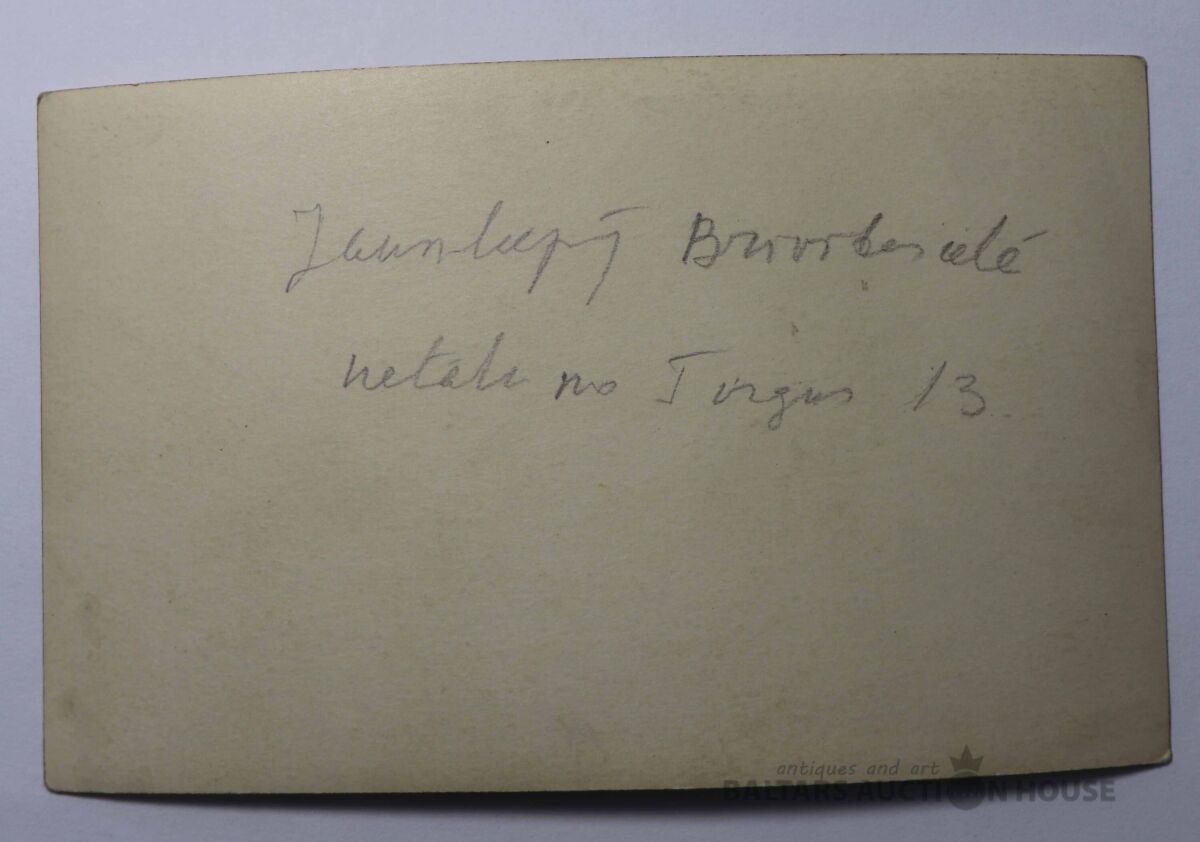 Jaunliepājā Brīvības ielā
netālu no Tirgus 13
antiques and art
BALTARS AUCTION HOUSE